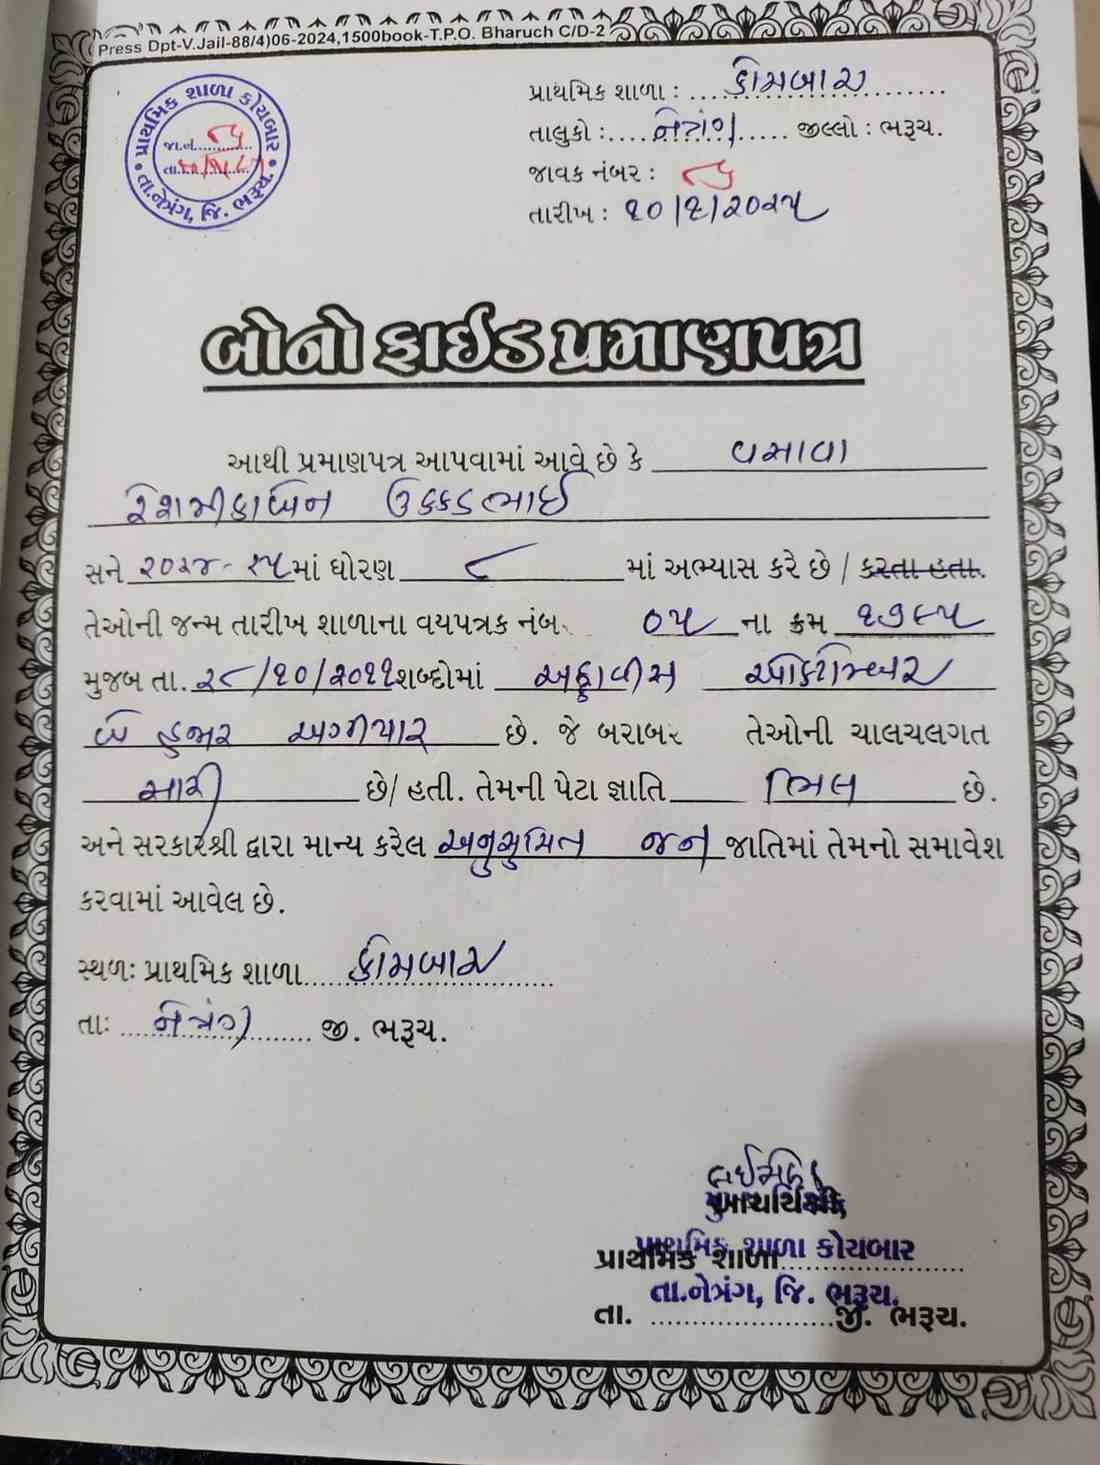 Press Dpt-V.Jail-88/4)06-2024,1500book-T.P.O. Bharuch C/D-2
પ્રાથમિક શાળા કોયબાર
જા.નં. ૮૫
તા.
તા.નેત્રંગ, જિ. ભરૂચ.
પ્રાથમિક શાળા : કોયબાર
તાલુકો : નેત્રંગ જીલ્લો : ભરૂચ.
જાવક નંબર : ૮૫
તારીખ : ૧૦/૧/૨૦૨૫
બોનોફાઈડ પ્રમાણપત્ર
આથી પ્રમાણપત્ર આપવામાં આવે છે કે વસાવા
રેશમીકાબેન ઉક્કડભાઈ
સને ૨૦૨૪-૨૫ માં ધોરણ ૮ માં અભ્યાસ કરે છે / કરતા હતા.
તેઓની જન્મ તારીખ શાળાના વયપત્રક નંબર ૦૫ ના ક્રમ ૧૭૯૫
મુજબ તા. ૨૮/૧૦/૨૦૧૧ શબ્દોમાં અઠ્ઠાવીસ ઓક્ટોમ્બર
બે હજાર અગીયાર છે. જે બરાબર તેઓની ચાલચલગત
સારી છે/ હતી. તેમની પેટા જ્ઞાતિ ભિલ છે.
અને સરકારશ્રી દ્વારા માન્ય કરેલ અનુસુચિત જન જાતિમાં તેમનો સમાવેશ
કરવામાં આવેલ છે.
સ્થળઃ પ્રાથમિક શાળા કોયબાર
તાઃ નેત્રંગ જી. ભરૂચ.
આચાર્યશ્રી,
પ્રાથમિક શાળા કોયબાર
પ્રાથમિક શાળા
તા.નેત્રંગ, જિ. ભરૂચ.
તા. જી. ભરૂચ.